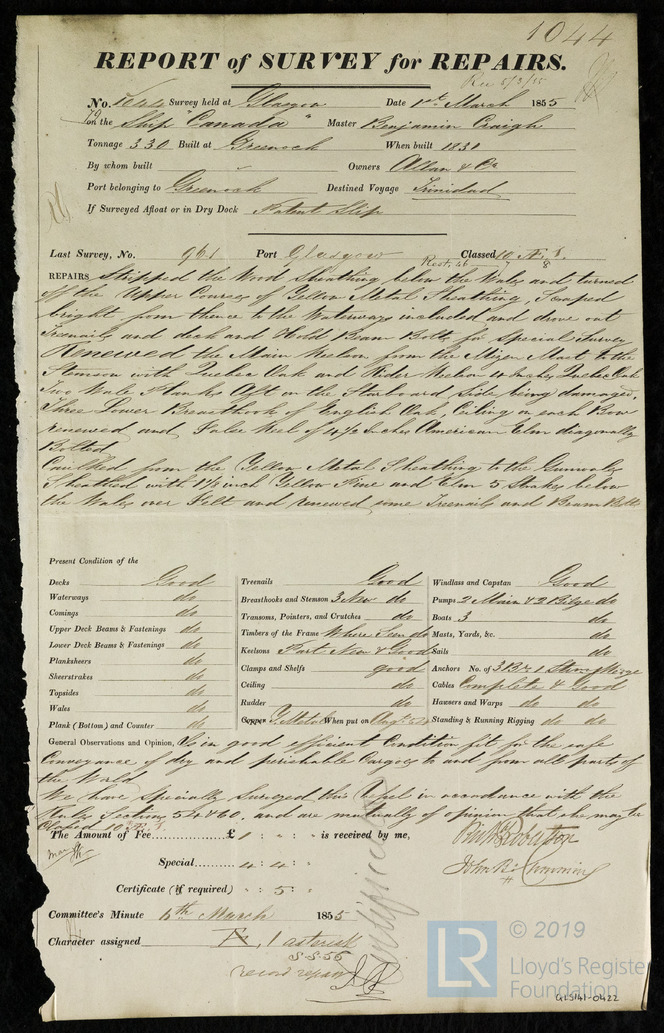 1044
REPORT of SURVEY for REPAIRS.
Rec 5/3/55
No. 1044 Survey held at Glasgow Date 1st March 1855
on the Ship "Canada" Master Benjamin Craigh
Tonnage 330 Built at Greenock When built 1831
By whom built Owners Allan & Co
Port belonging to Greenock Destined Voyage Trinidad
If Surveyed Afloat or in Dry Dock Patent Slip
Last Survey, No. 961 Port Glasgow Classed 10 A.
REPAIRS Stripped the Wood Sheathing below the Wales and turned
off the Upper Courses of Yellow Metal Sheathing, Scraped
bright from thence to the Waterways included and drove out
Treenails and deck and Hold Beam Bolts for Special Survey
Renewed the Main Keelson from the Mizen Mast to the
Stemson with Quebec Oak and Rider Keelson 14 Inches Quebec Oak
Two Wale Planks Aft on the Starboard Side being damaged,
Three Lower Breasthook of English Oak, Ceiling on each Bow
renewed and False Keel of 4½ Inches American Elm diagonally
Bolted
Caulked from the Yellow Metal Sheathing to the Gunwales
Sheathed with 1½ inch Yellow Pine and Elm 5 Strakes below
the Wales over Felt and renewed some Treenails and Beam Bolts
Present Condition of the
Decks Good
Waterways do
Comings do
Upper Deck Beams & Fastenings do
Lower Deck Beams & Fastenings do
Planksheers do
Sheerstrakes do
Topsides do
Wales do
Plank (Bottom) and Counter do
Treenails Good
Breasthooks and Stemson 3 New do
Transoms, Pointers, and Crutches do
Timbers of the Frame Where Seen do
Keelsons Part New & Good
Clamps and Shelfs good
Ceiling do
Rudder do
Copper Y. Metal When put on Augt. 54
Windlass and Capstan Good
Pumps 2 Main & 2 Bilge do
Boats 3 do
Masts, Yards, &c. do
Sails do
Anchors No. of 3 Br 1 Stream
Cables Complete & Good
Hawsers and Warps do do
Standing & Running Rigging do do
General Observations and Opinion, Is in good efficient Condition fit for the safe
Conveyance of dry and perishable Cargoes to and from all parts of
the World
We have specially Surveyed this Vessel in accordance with the
Rules Sections 54 & 60, and are mutually of opinion that she may be
Classed 10
The Amount of Fee £ 1 : " : " is received by me,
Special 4 : 4 :
Certificate (if required) " : 5 : "
Committee's Minute 6th March 1855
Character assigned 1 asterisk
S.S. 55
record repairs
© 2019
LR
Lloyd's Register
Foundation
GLS141-0422